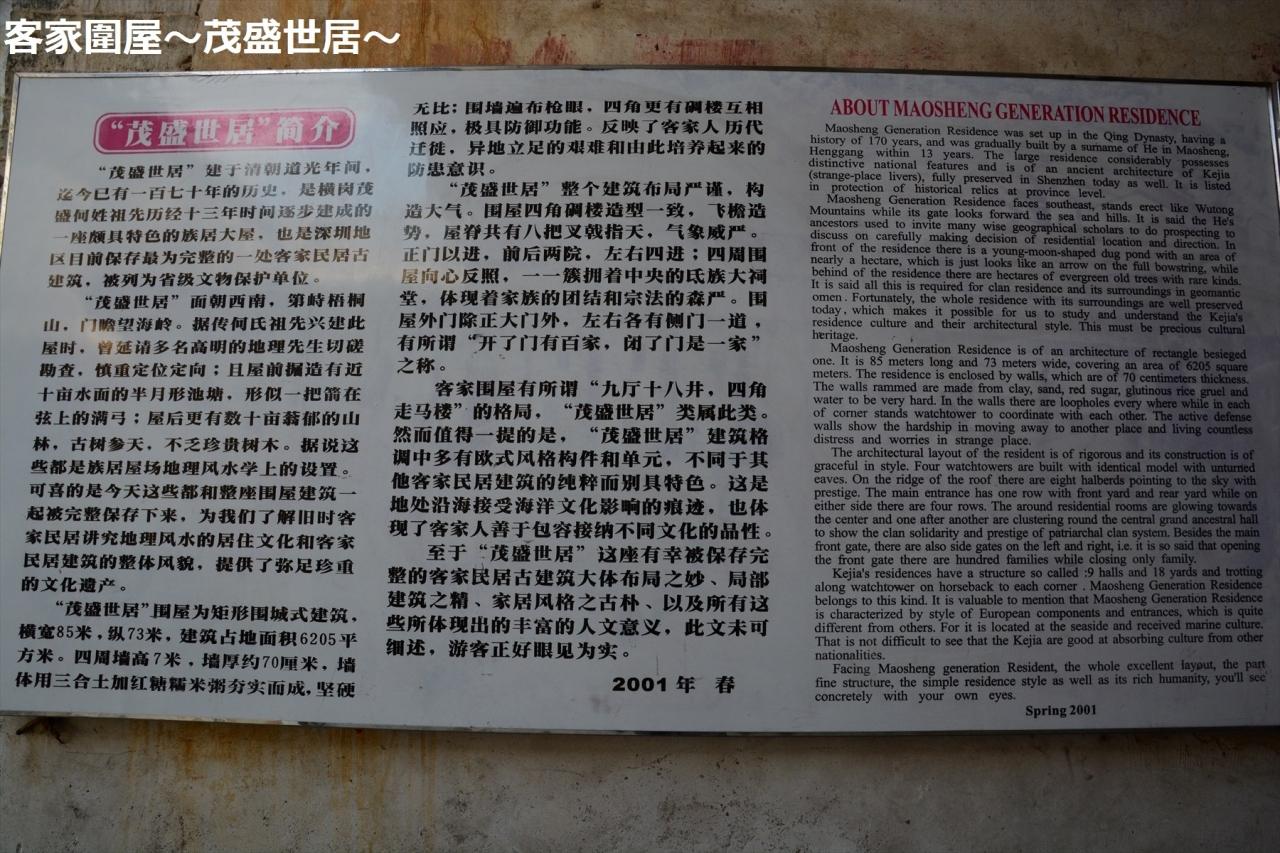 客家圍屋～茂盛世居～
“茂盛世居”简介
“茂盛世居”建于清朝道光年间，
迄今已有一百七十年的历史，是横岗茂
盛何姓祖先历经十三年时间逐步建成的
一座颇具特色的族居大屋，也是深圳地
区目前保存最为完整的一处客家民居古
建筑，被列为省级文物保护单位。
“茂盛世居”面朝西南，第峙梧桐
山，门瞻望海岭。据传何氏祖先兴建此
屋时，曾延请多名高明的地理先生切磋
勘查，慎重定位定向；且屋前掘造有近
十亩水面的半月形池塘，形似一把箭在
弦上的满弓；屋后更有数十亩蓊郁的山
林，古树参天，不乏珍贵树木。据说这
些都是族居屋场地理风水学上的设置。
可喜的是今天这些都和整座围屋建筑一
起被完整保存下来，为我们了解旧时客
家民居讲究地理风水的居住文化和客家
民居建筑的整体风貌，提供了弥足珍重
的文化遗产。
“茂盛世居”围屋为矩形围城式建筑，
横宽85米，纵73米，建筑占地面积6205平
方米。四周墙高7米，墙厚约70厘米，墙
体用三合土加红糖糯米粥夯实而成，坚硬
无比；围墙遍布枪眼，四角更有碉楼互相
照应，极具防御功能。反映了客家人历代
迁徙，异地立足的艰难和由此培养起来的
防患意识。
“茂盛世居”整个建筑布局严谨，构
造大气。围屋四角碉楼造型一致，飞檐造
势，屋脊共有八把叉戟指天，气象威严。
正门以进，前后两院，左右四进；四周围
屋向心反照，一一簇拥着中央的氏族大祠
堂，体现着家族的团结和宗法的森严。围
屋外门除正大门外，左右各有侧门一道，
有所谓“开了门有百家，闭了门是一家”
之称。
客家围屋有所谓“九厅十八井，四角
走马楼”的格局，“茂盛世居”类属此类。
然而值得一提的是，“茂盛世居”建筑格
调中多有欧式风格构件和单元，不同于其
他客家民居建筑的纯粹而别具特色。这是
地处沿海接受海洋文化影响的痕迹，也体
现了客家人善于包容接纳不同文化的品性。
至于“茂盛世居”这座有幸被保存完
整的客家民居古建筑大体布局之妙、局部
建筑之精、家居风格之古朴、以及所有这
些所体现出的丰富的人文意义，此文未可
细述，游客正好眼见为实。
2001年 春
ABOUT MAOSHENG GENERATION RESIDENCE
Maosheng Generation Residence was set up in the Qing Dynasty, having a
history of 170 years, and was gradually built by a surname of He in Maosheng,
Henggang within 13 years. The large residence considerably possesses
distinctive national features and is of an ancient architecture of Kejia
(strange-place livers), fully preserved in Shenzhen today as well. It is listed
in protection of historical relics at province level.
Maosheng Generation Residence faces southeast, stands erect like Wutong
Mountains while its gate looks forward the sea and hills. It is said the He's
ancestors used to invite many wise geographical scholars to do prospecting to
discuss on carefully making decision of residential location and direction. In
front of the residence there is a young-moon-shaped dug pond with an area of
nearly a hectare, which is just looks like an arrow on the full bowstring, while
behind of the residence there are hectares of evergreen old trees with rare kinds.
It is said all this is required for clan residence and its surroundings in geomantic
omen. Fortunately, the whole residence with its surroundings are well preserved
today, which makes it possible for us to study and understand the Kejia's
residence culture and their architectural style. This must be precious cultural
heritage.
Maosheng Generation Residence is of an architecture of rectangle besieged
one. It is 85 meters long and 73 meters wide, covering an area of 6205 square
meters. The residence is enclosed by walls, which are of 70 centimeters thickness.
The walls rammed are made from clay, sand, red sugar, glutinous rice gruel and
water to be very hard. In the walls there are loopholes every where while in each
of corner stands watchtower to coordinate with each other. The active defense
walls show the hardship in moving away to another place and living countless
distress and worries in strange place.
The architectural layout of the resident is of rigorous and its construction is of
graceful in style. Four watchtowers are built with identical model with unturned
eaves. On the ridge of the roof there are eight halberds pointing to the sky with
prestige. The main entrance has one row with front yard and rear yard while on
either side there are four rows. The around residential rooms are glowing towards
the center and one after another are clustering round the central grand ancestral hall
to show the clan solidarity and prestige of patriarchal clan system. Besides the main
front gate, there are also side gates on the left and right, i.e. it is so said that opening
the front gate there are hundred families while closing only family.
Kejia's residences have a structure so called :9 halls and 18 yards and trotting
along watchtower on horseback to each corner . Maosheng Generation Residence
belongs to this kind. It is valuable to mention that Maosheng Generation Residence
is characterized by style of European components and entrances, which is quite
different from others. For it is located at the seaside and received marine culture.
That is not difficult to see that the Kejia are good at absorbing culture from other
nationalities.
Facing Maosheng generation Resident, the whole excellent layout, the part
fine structure, the simple residence style as well as its rich humanity, you'll see
concretely with your own eyes.
Spring 2001